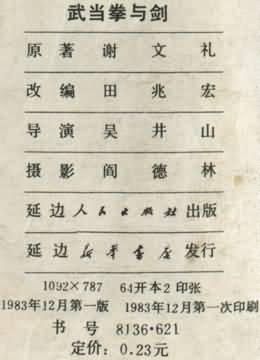 武当拳与剑
原著 谢文礼
改编 田兆宏
导演 吴井山
摄影 阎德林
延边人民出版社出版
延边新华书店发行
1092×787 64开本2印张
1983年12月第一版 1983年12月第一次印刷
书号 8136·621
定价：0.23元